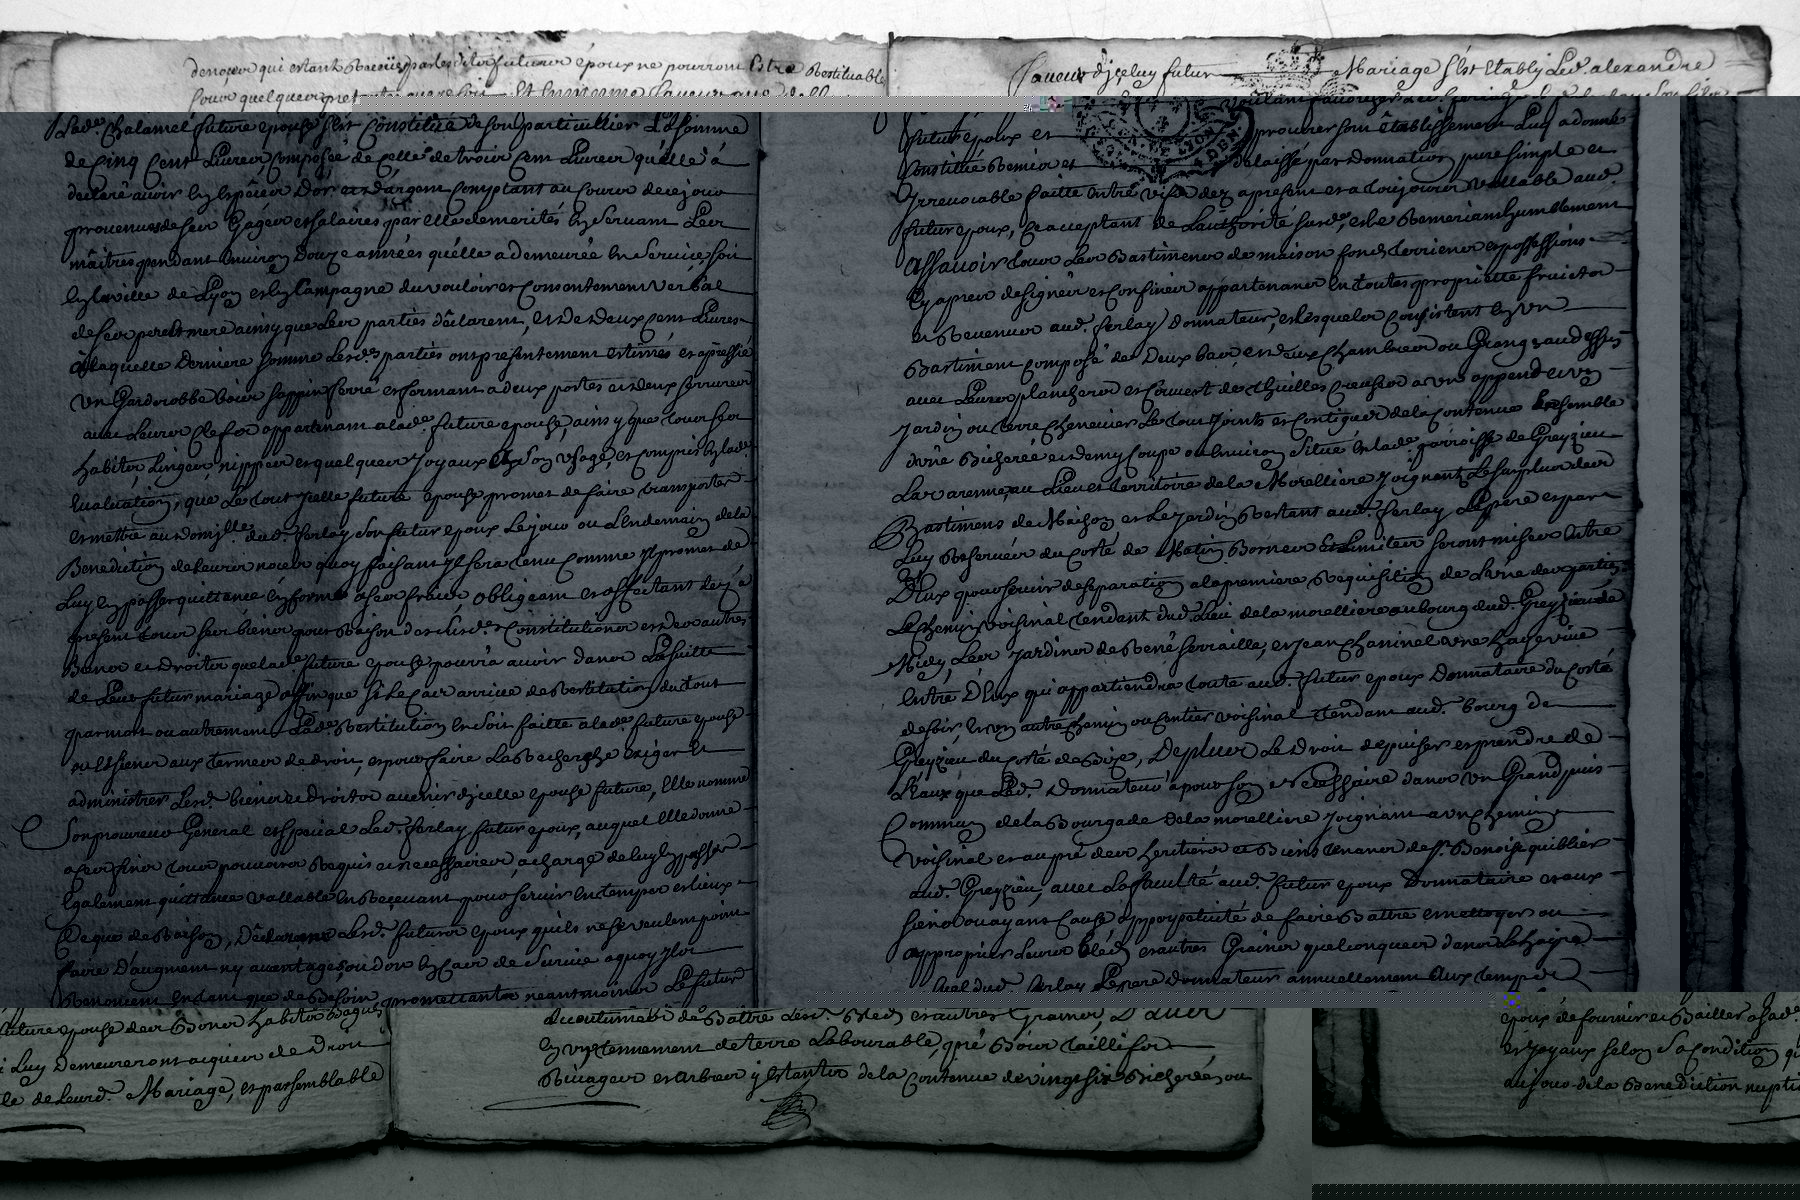 denoces qui estant Receües par lesdits futurs époux ne pourront Estre Restituable
pour quelque pretexte que ce soit Et en meme faveur que dell
Lade. Chalamel future epouse s'est Constitué de son particullier La somme
de Cinq Cent Livres, Composée de celle de trois Cent Livres qu'elle a
declaré avoir En Espèces D'or et d'argent Comptant au Cours de ce jour
provenues de ses Gages et salaires par elle demerités En Servant Les
maitres pendant environ Douze années qu'elle a demeurée En Service, soit
En la ville de Lyon et En Campagne du vouloir et Consentement Verbal
de ses pere et mere ainsy que Les parties déclarent, et de deux Cent Livres
à laquelle Derniere somme Lesdes parties ont presentement estimés et apressié
un Garderobbe bois sappin ferré et fermant a deux portes et deux serrures
avec Leurs Clefs appartenant a lade. future epouse, ainsy que tous ses
habits, Linges, nippes et quelques Joyaux de son usage, et compris En lade.
Evaluation, que Le tout Icelle future epouse promet de faire transporter
et mettre au domjlle. dud. ferlay son futur epoux Le jour ou Lendemain de la
Benediction de Leurs noces quoy faisant yl sera tenu Comme yl promet de
Luy En passer quittance En forme a ses frais obligeant et affectant dez a
present tous ses biens pour Raison desdes. Constitutions et des autres
Biens et Droits que lade. future epouse pourra avoir dans La suitte
de Leur futur mariage affin que Si Le Cas arrive de Restitution du tout
par mort ou autrement Lade. Restitution En soit faitte a lade. future epouse
ou Es siens aux termes de droit, et pour faire La Recherche exiger Et
administrer Lesd. biens et Droits avenir d'jcelle epouse future, Elle nomme
Son procureur General et special Led. ferlay futur epoux, auquel Elle donne
a ces fins tous pouvoirs Requis et necessaires, a charge de luy En passer
Egalement quittance vallable En Recevant pour servir En temps et Lieux
Ce que de Raison, Déclarant Lesd. futurs epoux qu'ils ne se veulent point
faire D'augment ny avantages ou don En Cas de Survie a quoy Ils
Renoncent En tant que de Besoin, promettant neantmoins Le futur
future epouse des Bonor habits Bagues
i Luy Demeureront acquis de Droit
le de Leurd. Mariage, et par semblable
faveur d'jceluy futur Mariage s'est Etably Led. alexandre
futur epoux et procurer son Etablissement Luy a donné
Constitué Remis et delaissé par Donnation pure simple et
Irrevocable faitte entre vifs dez a present et a toujours vallable aud.
futur epoux, Ce acceptant de L'authorité susde., et Le Remeriant humblement
Assavoir tous Les Bastiments de maison fonds terriens et possessions
Cy apres designés et confinés appartenant En toutes proprietté fruits
et Revenus aud. ferlay Donnateur, et Lesquels Consistent En un
Bastiment composé de Deux bas et deux Chambres ou Granges au dessus
avec Leurs planchers et Couvert de thuilles Creuses a un append et un
Jardin ou terre Chenevier Le tout Joints et Contigus de la Contenue Ensemble
d'une Bicherée et demy Coupe ou Environ Situé En lade. parroisse de Greyzieu
La varenne, au Lieu et territoire de la Morelliere Joignant Le surplus des
Bastiments de Maison et Le jardin Restant aud. ferlay Le pere et par
Luy Reservés du Costé de Matin Bornes Et Limites seront mises Entre
D'Eux pour servir de separation a la premiere Requisition de L'une des parties
Le chemin voisinal tendant dud. Lieu de la morelliere au bourg dud. Greyzieu de
Midy, Les Jardins de René ferraille, et Jean Chaninel une haye vive
Entre D'Eux qui appartiendra toute aud. futur epoux Donnataire du Costé
de soir, Et un autre chemin ou sentier voisinal tendant aud. bourg de
Greyzieu du Costé de Bize, De plus Le Droit de puiser et prendre de
L'Eaux que Led. Donnateur a pour son Necessaire dans un Grand puis
Commun de la Bourgade de la morelliere Joignant a un chemin
voisinal et au pré des heritiers et Biens tenans de Sr. Benoist quiblier
aud. Greyzieu, avec La faculté aud. futur epoux Donnataire et aux
siens ou ayans Cause a perpetuité de faire Battre et nettoyer ou
approprier Leurs bléds et autres Grains quelconques dans Le haire
quel dud. ferlay Le pere Donnateur annuellement aux temps
accoutumés de Battre Lesd. Bleds et autres Grains, D'aller
En un tennement de terre Labourable, pré Bois taillifs
Rivages et arbres y Estants de la Contenue de vingt six Bicherées ou
epoux de fournir et Bailler a lad.
et joyaux selon Sa Condition qu
au jour de la Benediction nupti